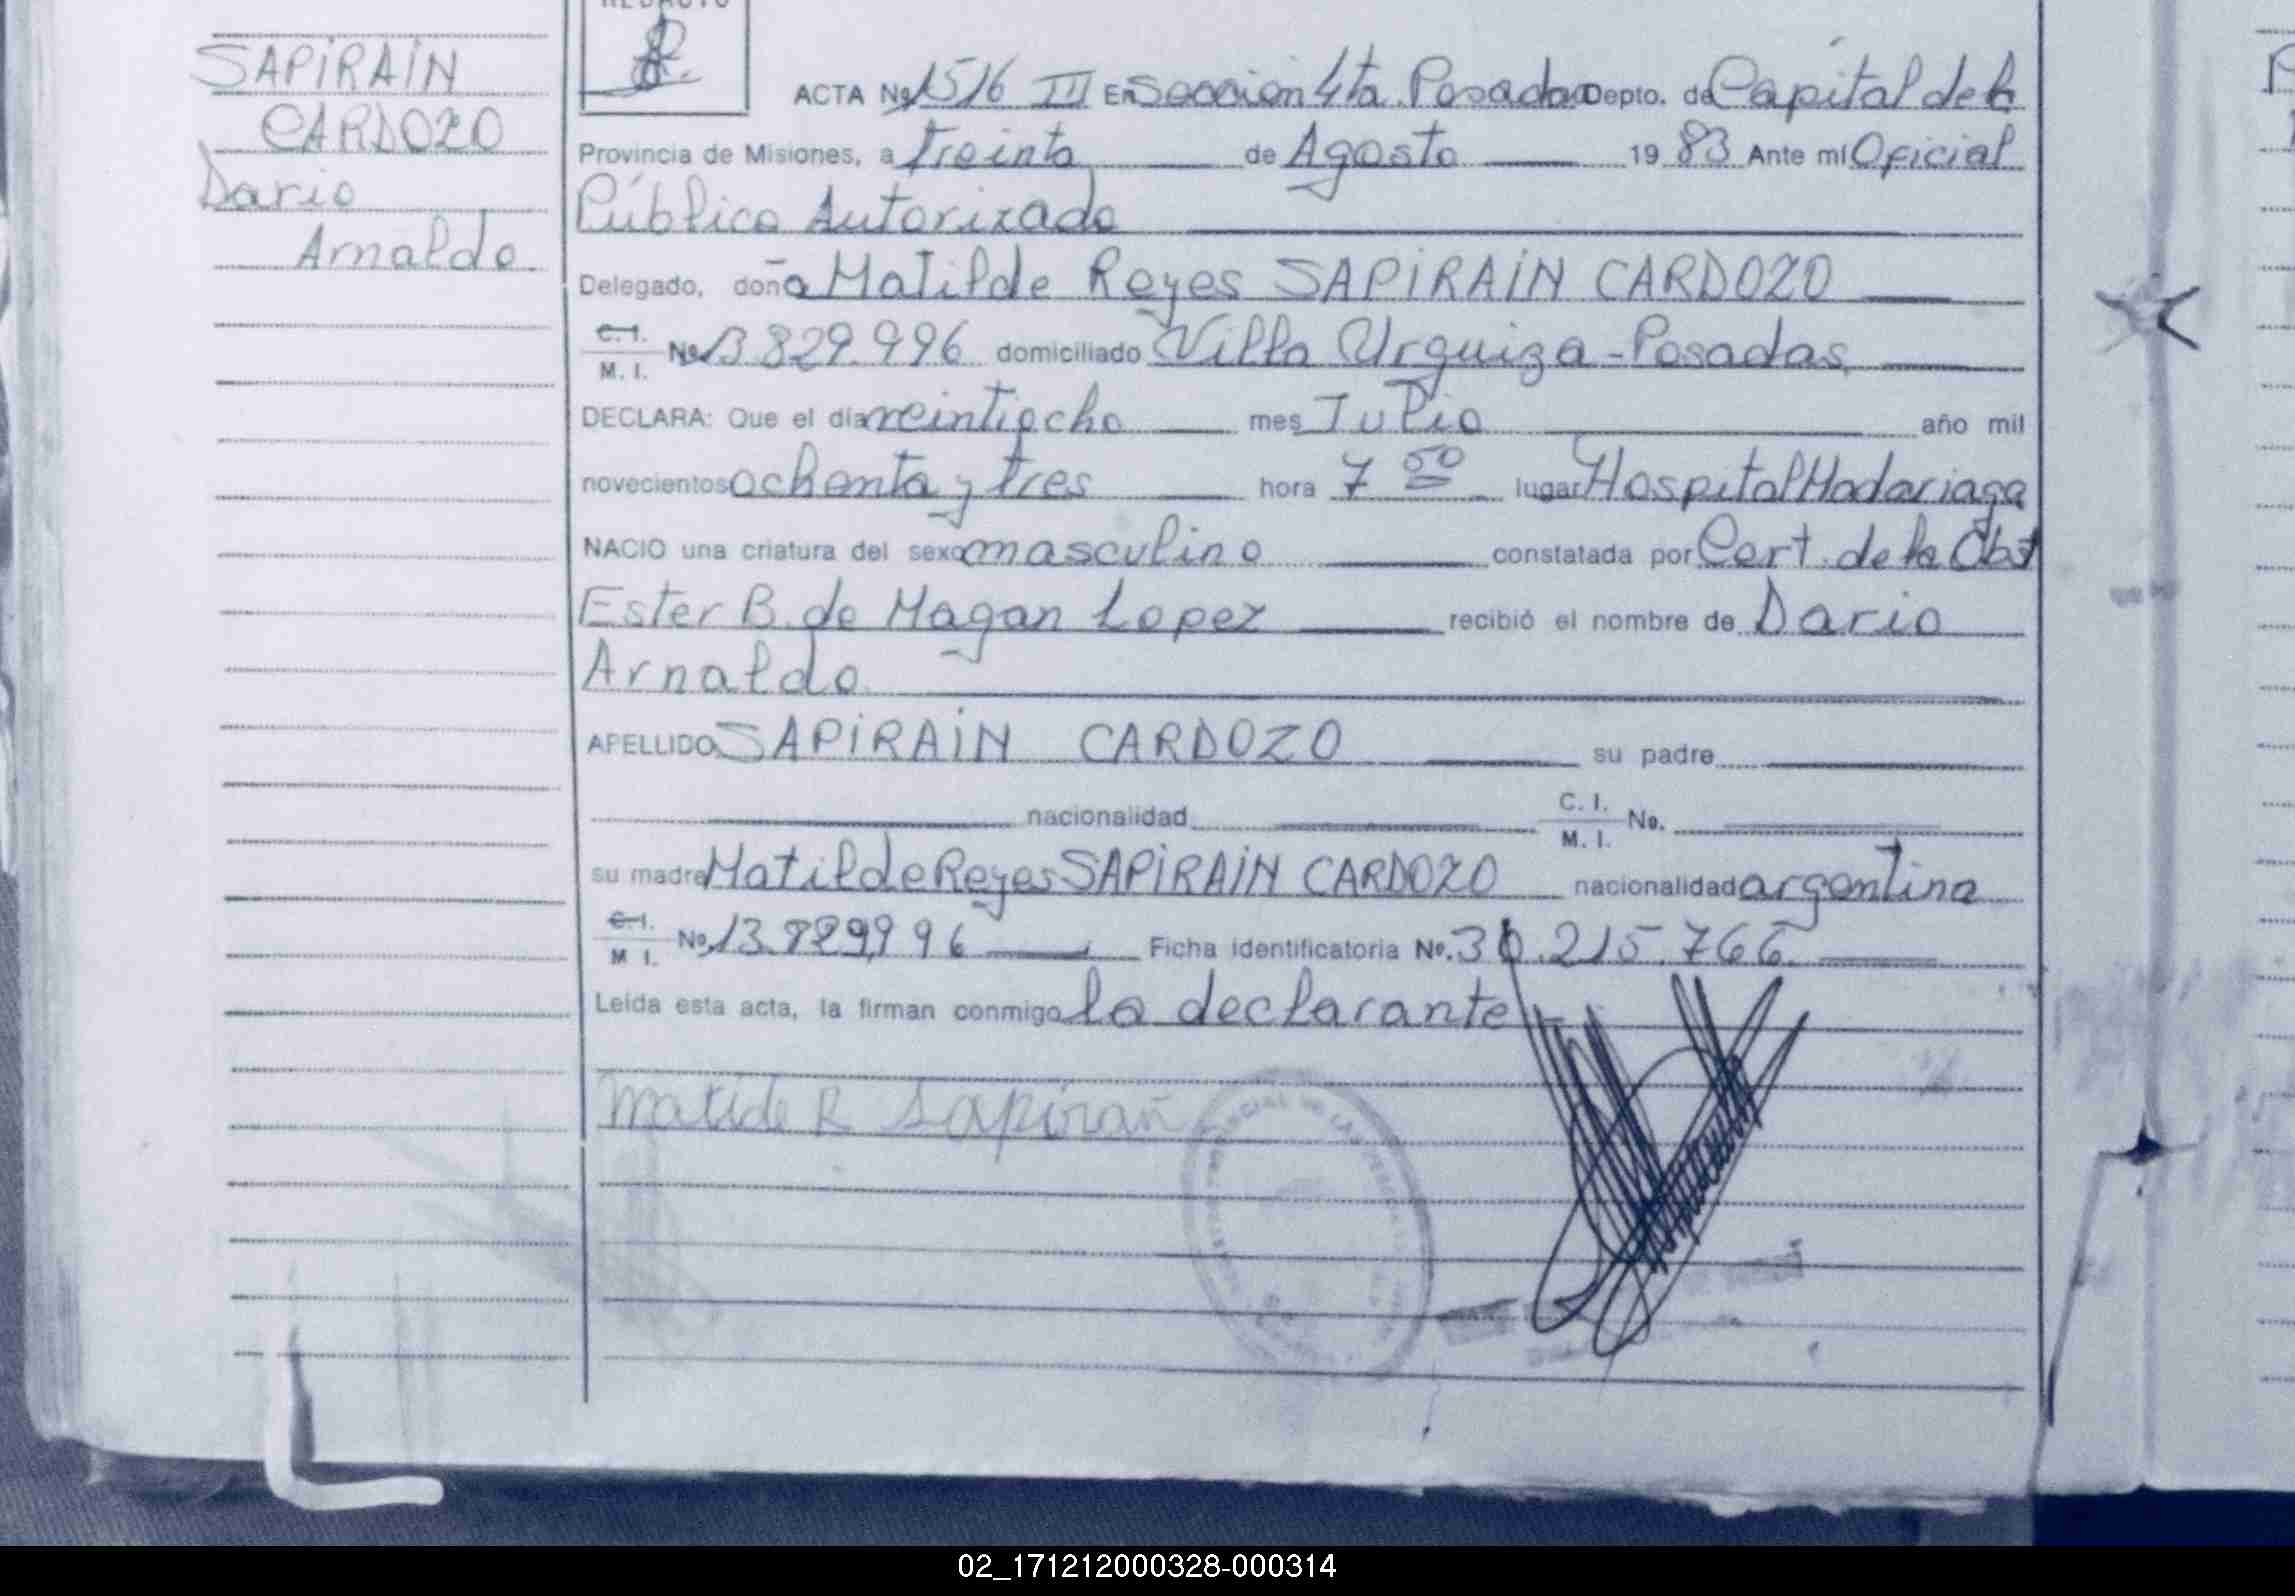 SAPIRAIN
CARDOZO
Dario
Arnaldo
REDACTO
ACTA No 1516 III En Sección 4ta. Posadas Depto. de Capital de la
Provincia de Misiones, a treinta de Agosto 19 83 Ante mi Oficial
Público Autorizado
Delegado, doña Matilde Reyes SAPIRAIN CARDOZO
C.I. M.I. No 13.829.996 domiciliado Villa Urquiza - Posadas
DECLARA: Que el día veintiocho mes Julio año mil
novecientos ochenta y tres hora 7 50 lugar Hospital Madariaga
NACIO una criatura del sexo masculino constatada por Cert. de la Obst
Ester B. de Magan Lopez recibió el nombre de Dario
Arnaldo
APELLIDO SAPIRAIN CARDOZO su padre
nacionalidad C.I. M.I. No.
su madre Matilde Reyes SAPIRAIN CARDOZO nacionalidad argentina
C.I. M I. No. 13.829.996 Ficha identificatoria No. 30.215.766
Leída esta acta, la firman conmigo la declarante
Matilde R Sapirain
02_171212000328-000314